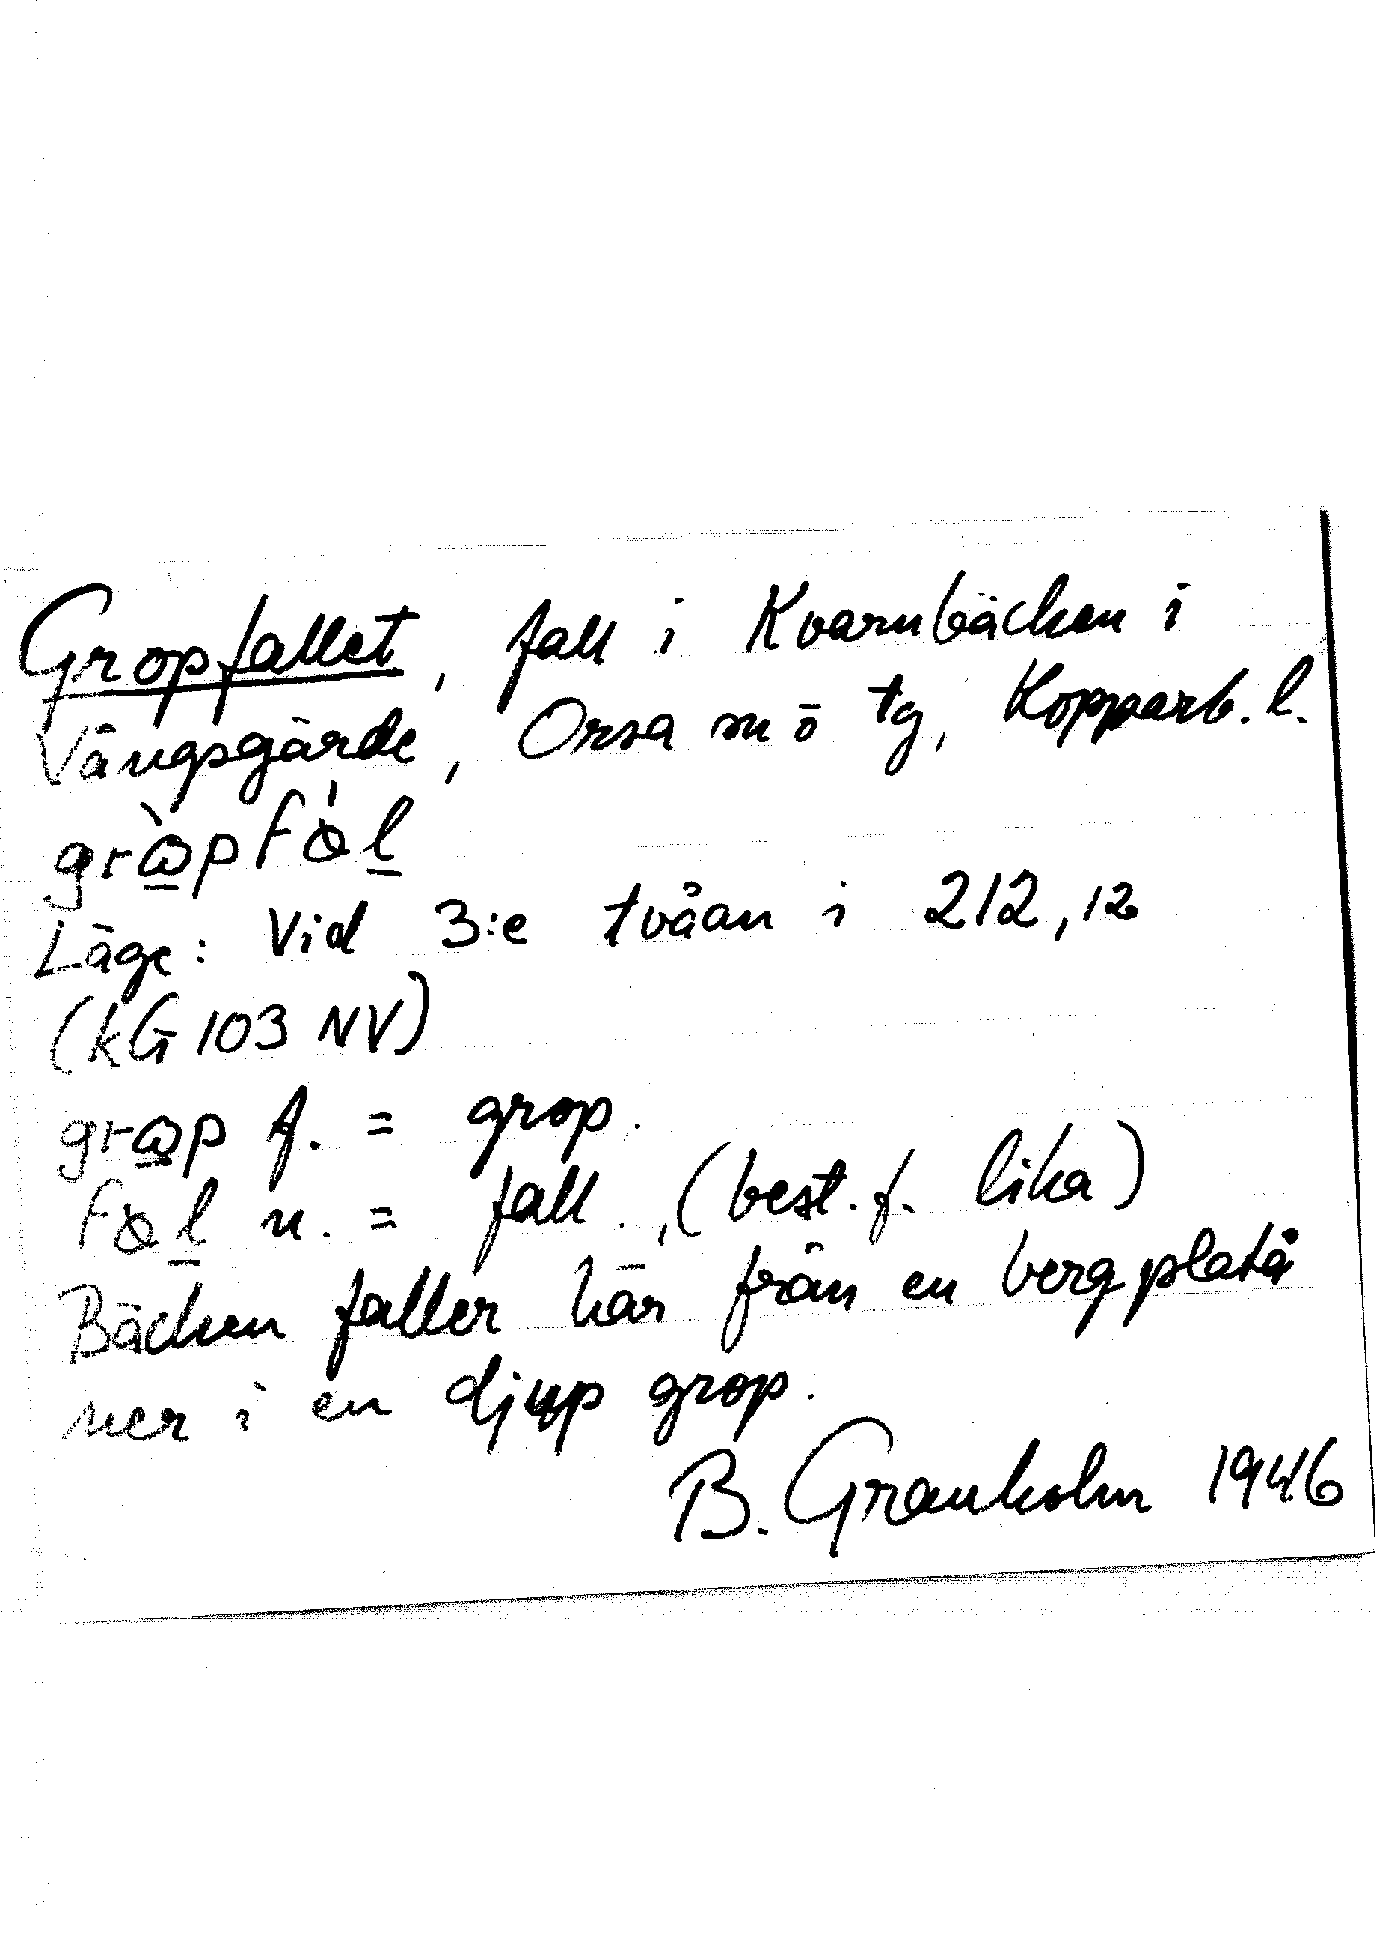 Gropfallet, fall i Kvarnbäcken i
Vångsgärde, Orsa sn ö tg, Kopparb. l.
Läge: Vid 3:e tvåan i 212,12
(kG 103 NV)
f. = grop.
n. = fall., (best. f. lika)
Bäcken faller här från en bergplatå
ner i en djup grop.
B. Granholm 1946